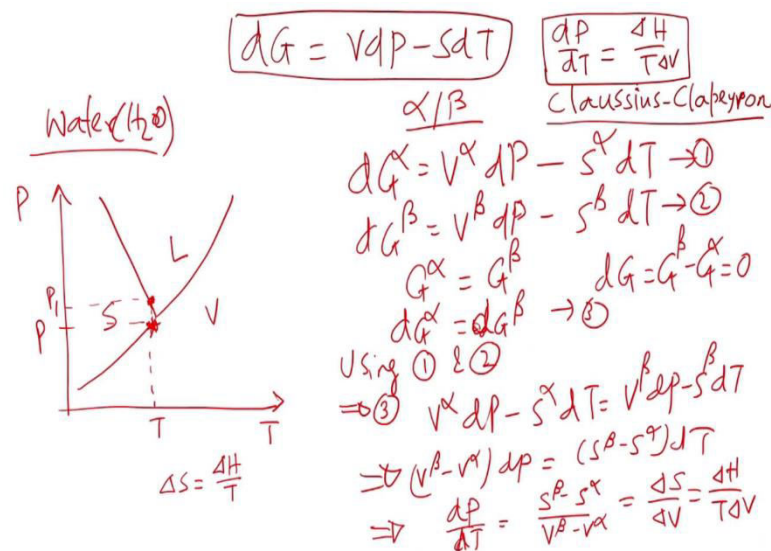 dG = VdP - SdT
dP/dT = ΔH/TΔV
Claussius-Clapeyron
Water(H₂O)
P
L
S
V
P₁
P
T
T
ΔS = ΔH/T
α/β
dG^α = V^α dP - S^α dT → ①
dG^β = V^β dP - S^β dT → ②
G^α = G^β
dG = G^β - G^α = 0
dG^α = dG^β → ③
Using ① & ②
⇒ ③ V^α dP - S^α dT = V^β dP - S^β dT
⇒ (V^β - V^α) dP = (S^β - S^α) dT
⇒ dP/dT = S^β - S^α / V^β - V^α = ΔS/ΔV = ΔH/TΔV